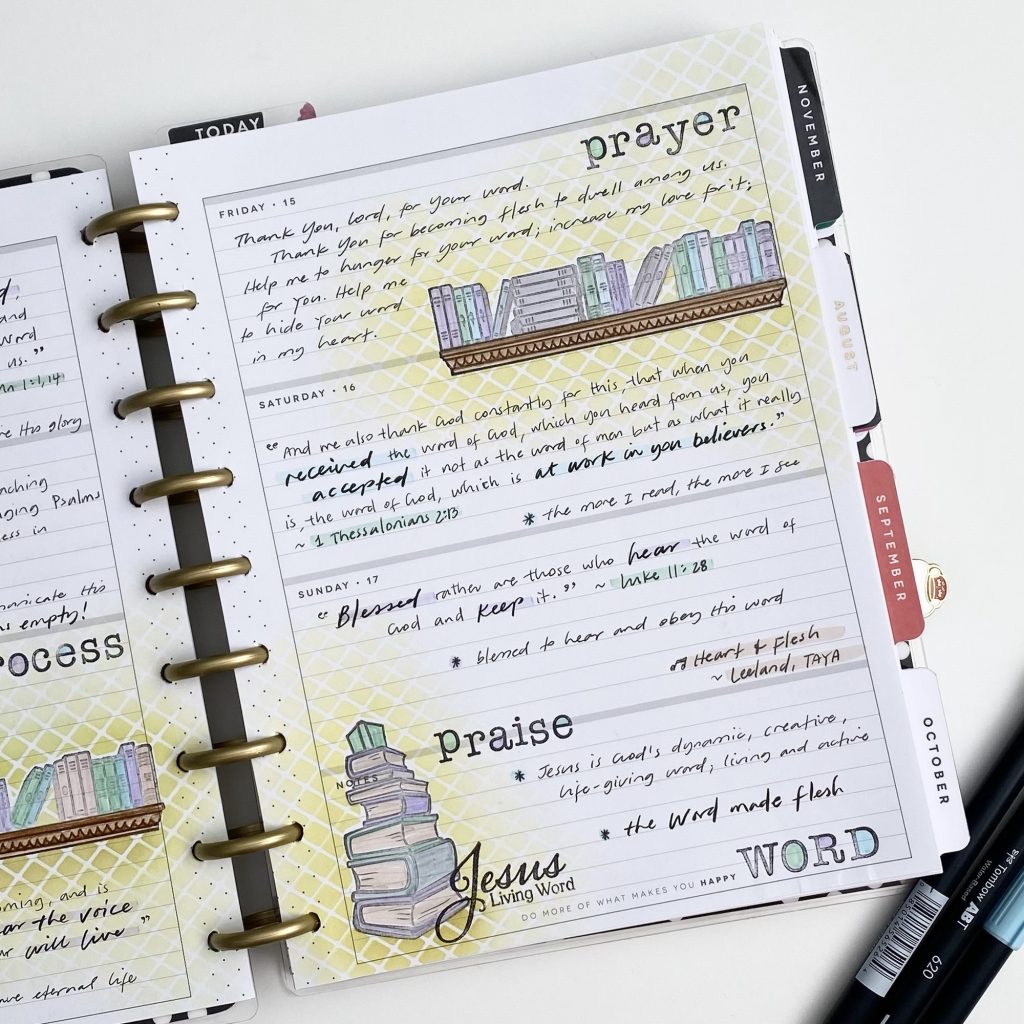 TODAY
d.
and
word
us."
n 1:1,14
re His glory
Psalms
ess in
municate His
is empty!
rocess
oming, and is
ear the voice
r will live"
ave eternal life
prayer
FRIDAY • 15
Thank you, Lord, for your word.
Thank you for becoming flesh to dwell among us.
Help me to hunger for your word; increase my love for it;
for you. Help me
to hide your word
in my heart.
SATURDAY • 16
"And we also thank God constantly for this, that when you
received the word of God, which you heard from us, you
accepted it not as the word of men but as what it really
is, the word of God, which is at work in you believers."
~ 1 Thessalonians 2:13
* the more I read, the more I see
SUNDAY • 17
"Blessed rather are those who hear the word of
God and keep it." ~ Luke 11:28
* blessed to hear and obey His word
♫ Heart & Flesh
~ Leeland, TAYA
praise
NOTES
* Jesus is God's dynamic, creative,
life-giving word; living and active
* the Word made flesh
Jesus
Living Word
WORD
DO MORE OF WHAT MAKES YOU HAPPY
NOVEMBER
AUGUST
SEPTEMBER
OCTOBER
Tombow ABT
Water-Based
620